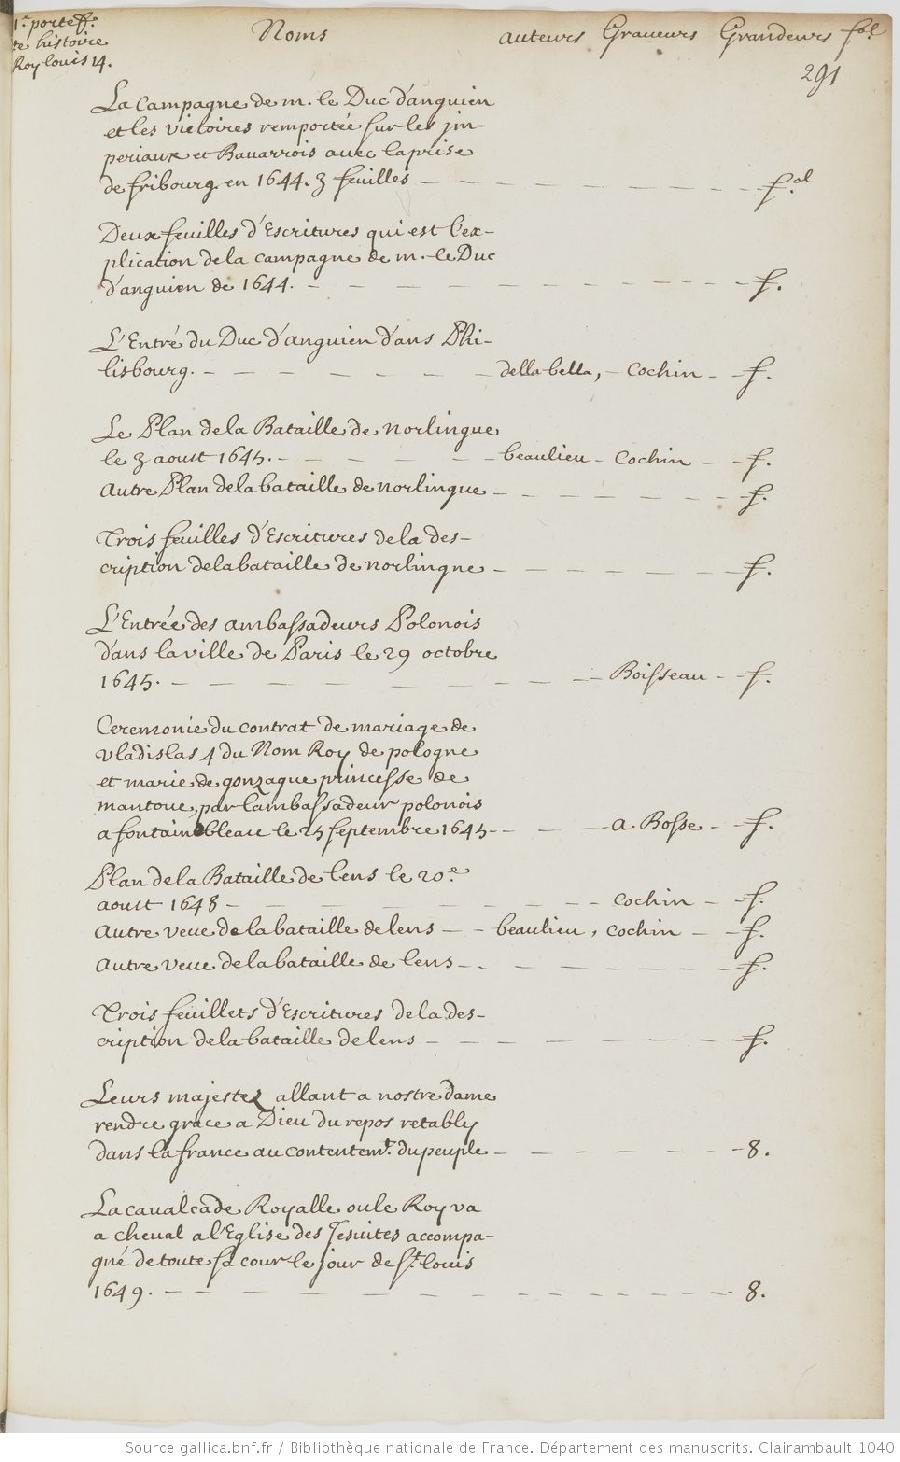 1.e porteff.e
re histoire
Roy louis 14.
Noms auteurs Graveurs Grandeurs fol
291
La Campagne de m. le Duc d'anguien
et les victoires remportée sur les jm-
periaux et Bavarrois avec la prise
de fribourg en 1644. 3 feuilles — f.al
Deux feuilles d'Escritures qui est l'ex-
plication de la campagne de m. le Duc
d'anguien de 1644. — f.
L'Entré du Duc d'anguien d'ans Phi-
lisbourg. — della bella, — Cochin — f.
Le Plan de la Bataille de norlingue
le 3 aoust 1645. — beaulieu — Cochin — f.
autre Plan de la bataille de norlingue — f.
Trois feuilles d'Escritures de la des-
cription de la bataille de norlingue — f.
L'Entrée des ambassadeurs Polonois
d'ans la ville de Paris le 29 octobre
1645. — Boisseau — f.
Ceremonie du contrat de mariage de
vladislas 4 du Nom Roy de pologne
et marie de gonzague princesse de
mantoue, par l'ambassadeur polonois
a fontainebleau le 25 septembre 1645 — a. Bosse — f.
Plan de la Bataille de lens le 20.e
aoust 1648 — Cochin — f.
autre veue de la bataille de lens — beaulieu, Cochin — f.
autre veue de la bataille de lens — f.
Trois feuillets d'Escritures de la des-
cription de la bataille de lens — f.
Leurs majestez allant a nostre dame
rendre grace a Dieu du repos retably
dans la france au contentem.t du peuple — 8.
La cavalcade Royalle ou le Roy va
a cheval a l'Eglise des Jesuites accompa-
gné de toute sa cour le jour de S.t louis
1649. — 8.
Source gallica.bnf.fr / Bibliothèque nationale de France. Département des manuscrits. Clairambault 1040